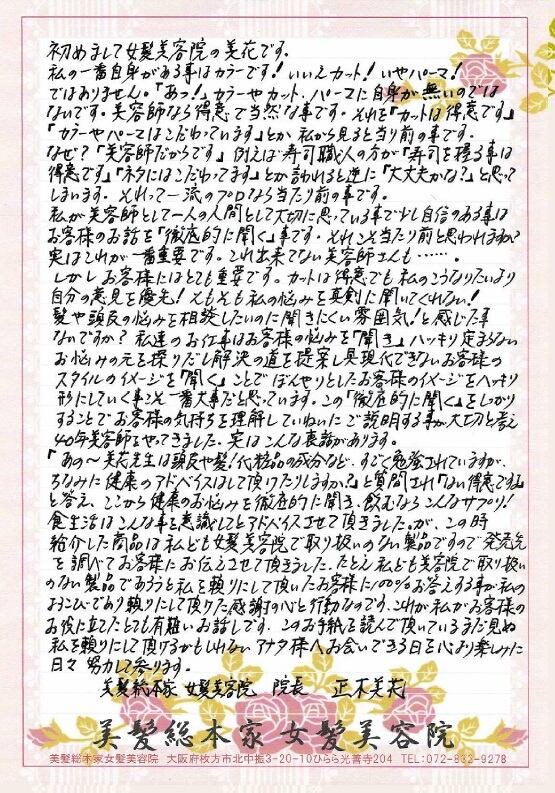 初めまして女髪美容院の美花です。
私の一番自身がある事はカラーです!いいえカット!いやパーマ!
ではありません。「あっ!」カラーやカット、パーマに自身が無いのでは
ないです。美容師なら得意で当然な事です。それを「カットは得意です」
「カラーやパーマはこだわっています」とか私から見ると当り前の事です。
なぜ?「美容師だからです」例えば寿司職人の方が「寿司を握る事は
得意です」「ネタにはこだわってます」とか言われると逆に「大丈夫かな?」と思って
しまいます。それって一流のプロなら当たり前の事です。
私が美容師として一人の人間として大切に思っている事で少し自信のある事は
お客様のお話を「徹底的に聞く」事です。それこそ当たり前と思われますか?
実はこれが一番重要です。これ出来てない美容師さんも……。
しかしお客様にはとても重要です。カットは得意でも私のこうなりたいより
自分の意見を優先!そもそも私の悩みを真剣に聞いてくれない!
髪や頭皮の悩みを相談したいのに聞きにくい雰囲気!と感じた事
ないですか?私達のお仕事はお客様の悩みを「聞き」ハッキリ定まらない
お悩みの元を探りだし解決の道を提案し具現化できないお客様の
スタイルのイメージを「聞く」ことでぼんやりとしたお客様のイメージをハッキリ
形にしていく事こそ一番大事だと思っています。この「徹底的に聞く」をしっかり
することでお客様の気持ちを理解していねいにご説明する事が大切と考え
40年美容師をやってきました。実はこんな裏話があります。
「あの〜美花先生は頭皮や髪!化粧品の成分など、すごく勉強されていますが、
ちなみに健康のアドバイスはして頂けたりしますか?」と質問され「ない得意ですよ」
と答え、ここから健康のお悩みを徹底的に聞き、飲むならこんなサプリ!
食生活はこんな事を意識してとアドバイスさせて頂きました。が、この時
紹介した商品は私ども女髪美容院で取り扱いのない製品ですので発売元
を調べてお客様にお伝えさせて頂きました。たとえ私ども美容院で取り扱い
のない製品であろうと私を頼りにして頂いたお客様に100%お答えする事が私の
よろこびであり頼りにして頂けた感謝の心と行動なのです。これが私がお客様の
お役に立てたとても有難いお話しです。このお手紙を読んで頂いているまだ見ぬ
私を頼りにして頂けるかもしれないアナタ様へお会いできる日を心より楽しみに
日々努力して参ります。
美髪総本家 女髪美容院 院長 正木美花
美髪総本家女髪美容院
美髪総本家女髪美容院 大阪府枚方市北中振3-20-10ひらら光善寺204 TEL:072-833-9278